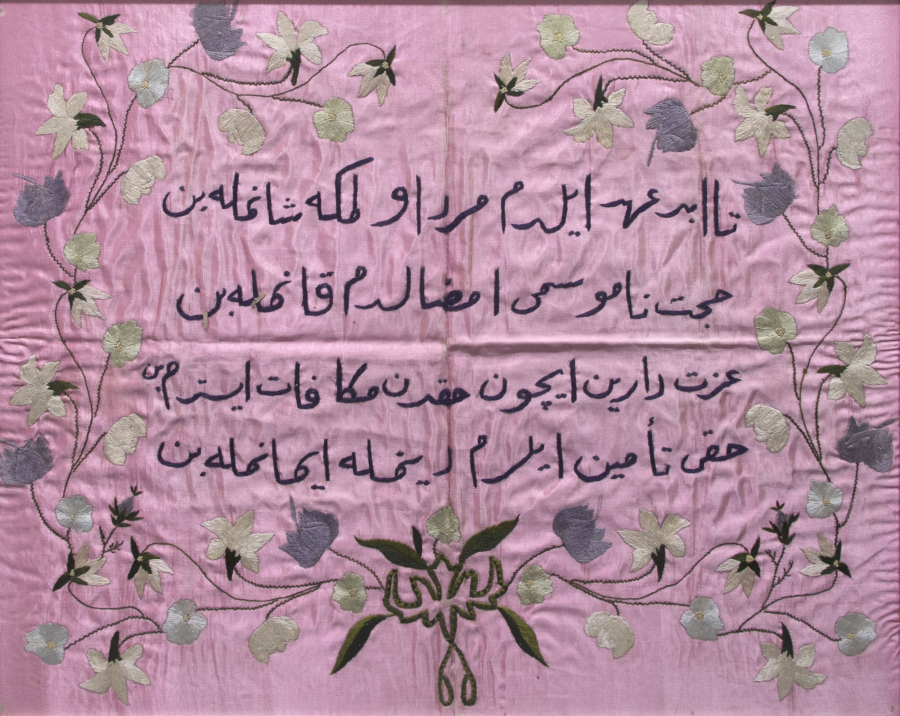 تا ابد عهد ایلدم مردا و لمکه شانمله بن
حجت ناموسمی امضالدم قانمله بن
عزت دارین ایچون حقدن مکافات ایسترم بن
حقی تأمین ایلرم دینمله ایمانمله بن